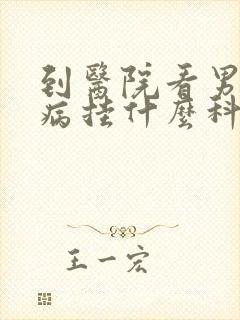 到醫院看男
病挂什麼科
王一宏